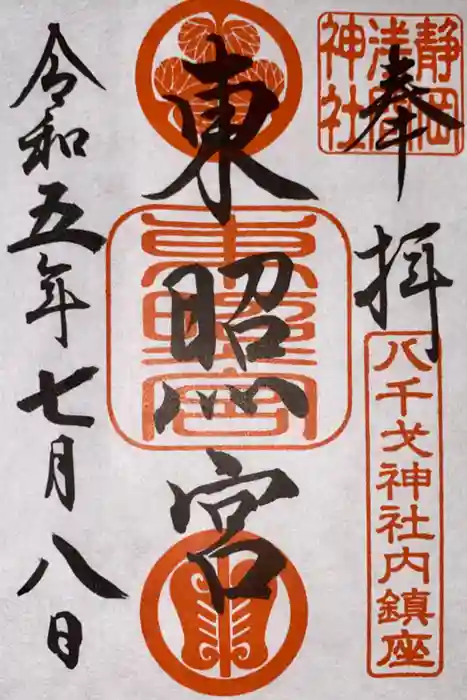 静岡
浅間
神社
奉拝
八千戈神社内鎮座
東照宮
東照宮
令和五年七月八日